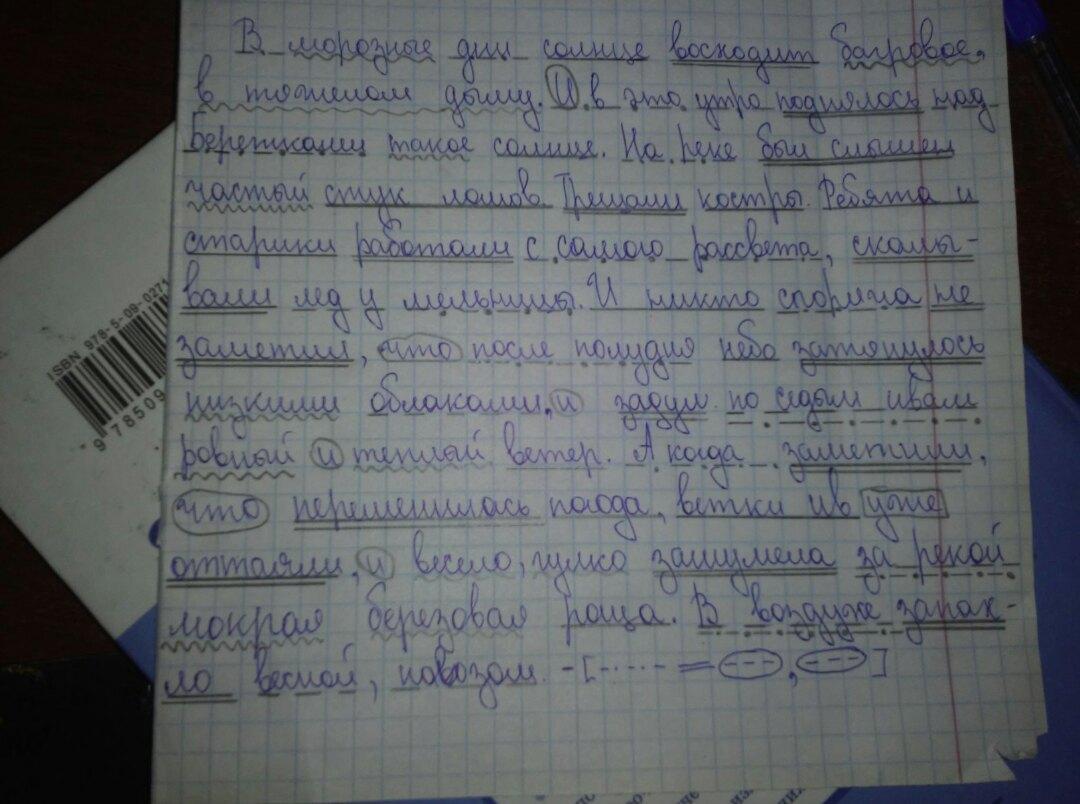 В морозные дни солнце восходит багровое,
в тяжелом дыму. И в это утро поднялось над
Бережками такое солнце. На реке был слышен
частый стук ломов. Трещали костры. Ребята и
старики работали с самого рассвета, скалы-
вали лед у мельницы. И никто сгоряча не
заметил, что после полудня небо затянулось
низкими облаками, и задул по седым ивам
ровный и теплый ветер. А когда заметили,
что переменилась погода, ветки ив уже
оттаяли, и весело, гулко зашумела за рекой
мокрая березовая роща. В воздухе запах-
ло весной, навозом. -[-·-·- = (---), (---)]
ISBN 978-5-09-027
9 78509